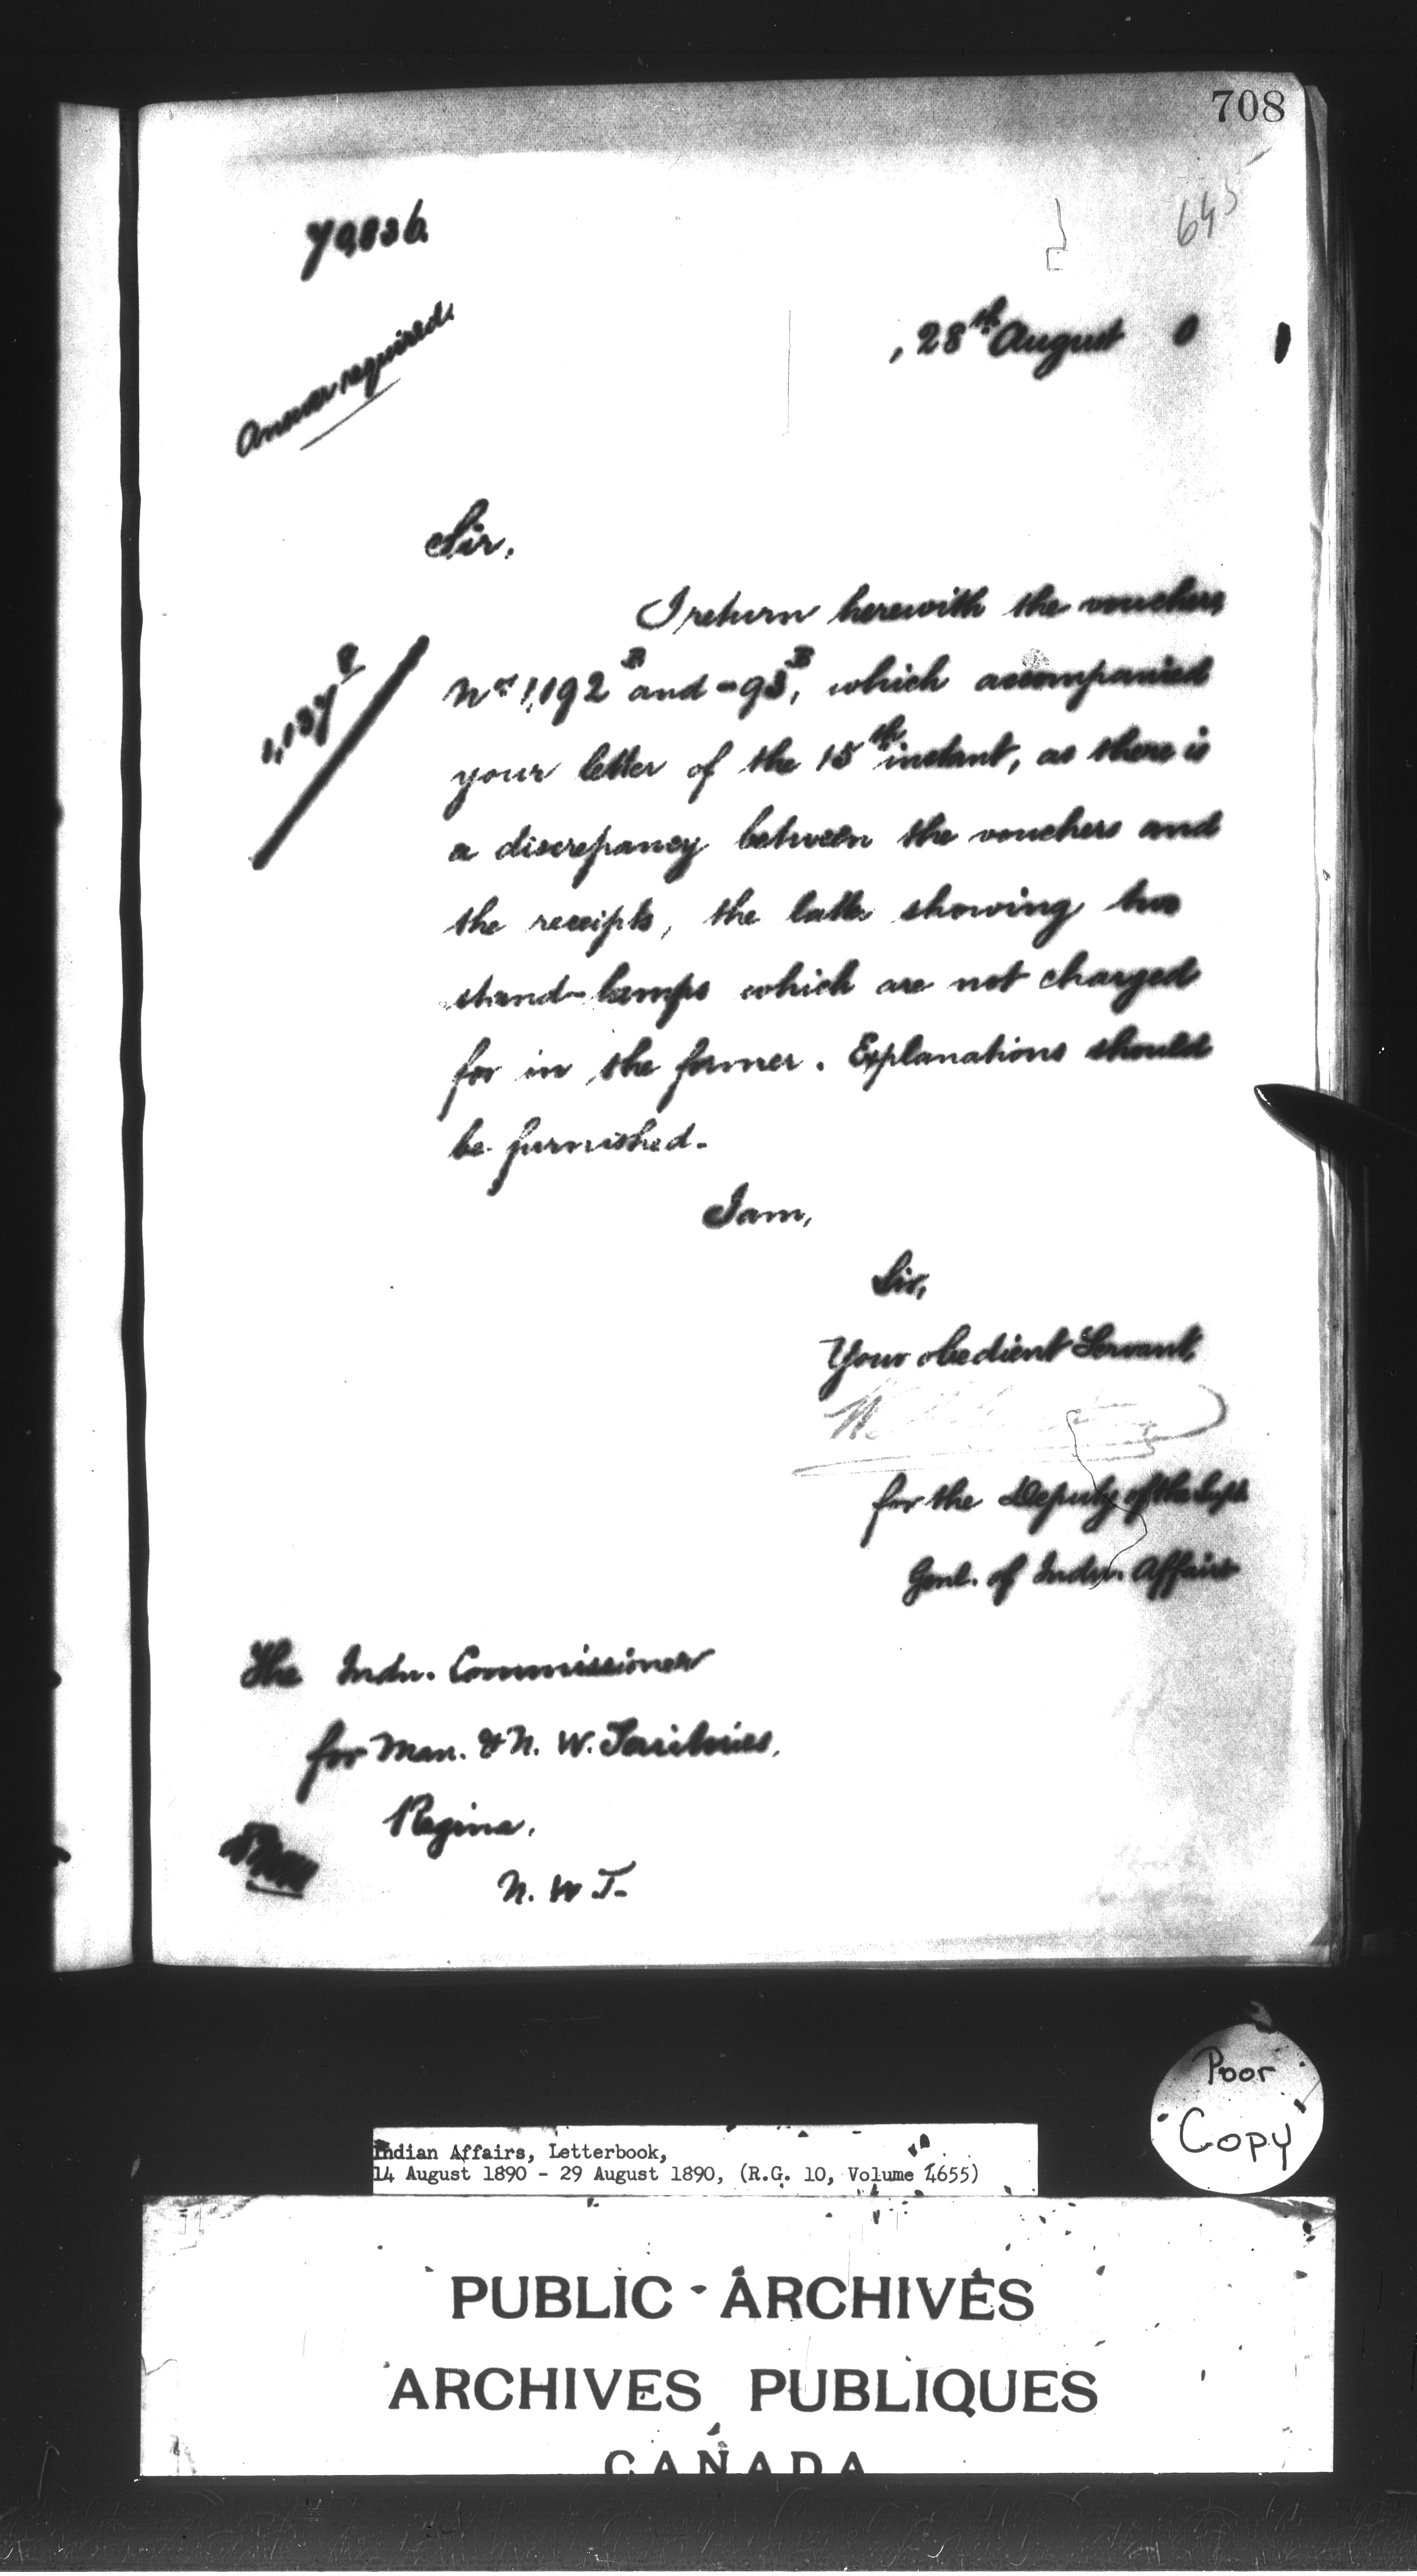 708
645
28th August 0
Answer required.
Sir,
I return herewith the vouchers
Nos 1,192 B and -93 B, which accompanied
your letter of the 15th instant, as there is
a discrepancy between the vouchers and
the receipts, the latter showing two
stand-lamps which are not charged
for in the former. Explanations should
be furnished.
I am,
Sir,
Your obedient Servant,
for the Deputy of the Supt.
Genl. of Indn. Affairs
The Indn. Commissioner
for Man. & N. W. Territories,
Regina,
N. W. T.
Poor
Copy
Indian Affairs, Letterbook,
14 August 1890 - 29 August 1890, (R.G. 10, Volume 4655)
PUBLIC ARCHIVES
ARCHIVES PUBLIQUES
CANADA